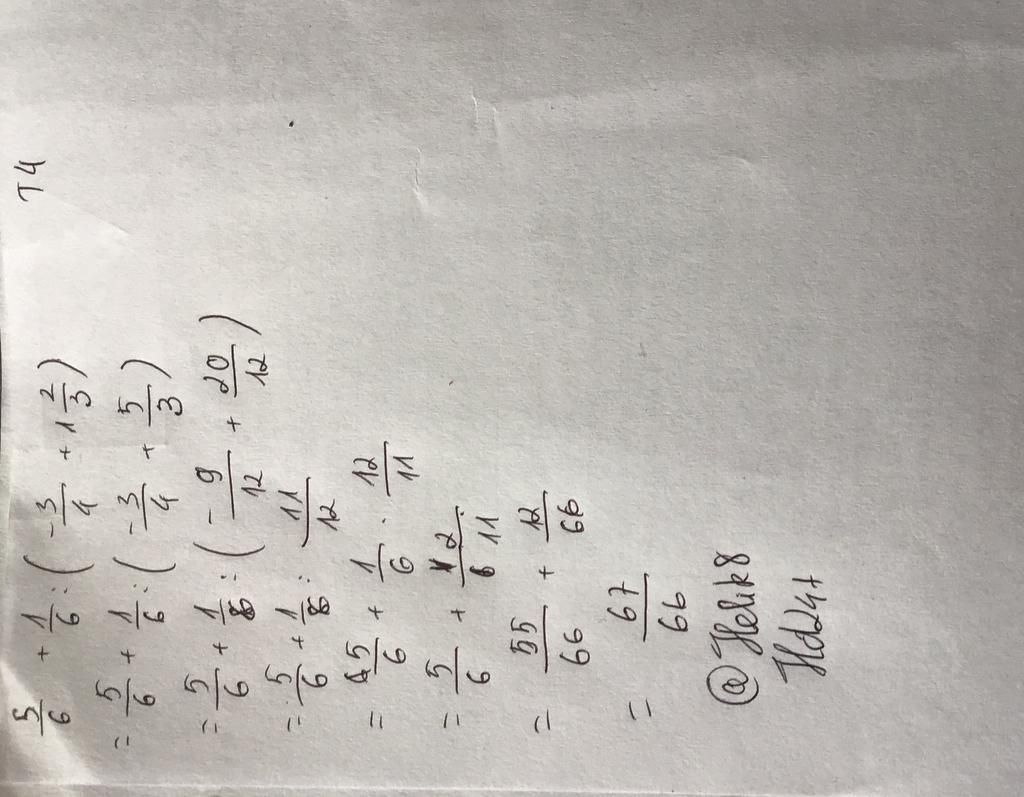 T4
5/6 + 1/6 : (-3/4 + 1 2/3)
= 5/6 + 1/6 : (-3/4 + 5/3)
= 5/6 + 1/6 : (-9/12 + 20/12)
= 5/6 + 1/6 : 11/12
= 5/6 + 1/6 · 12/11
= 5/6 + 2/11
= 55/66 + 12/66
= 67/66